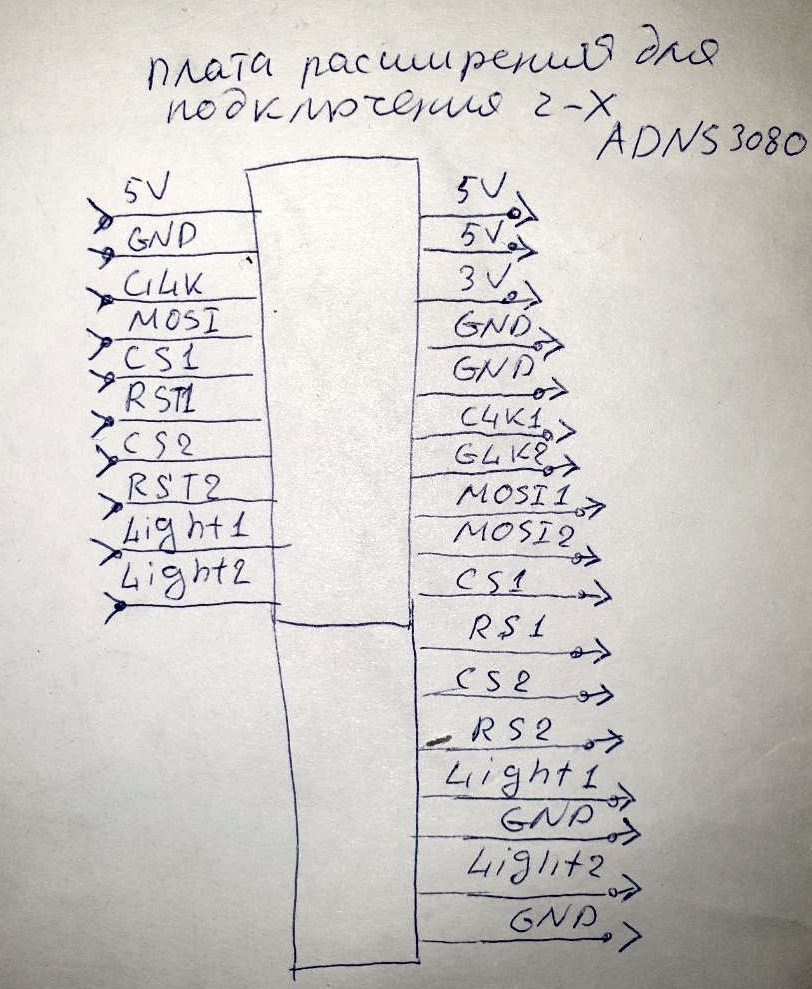 плата расширения для
подключения 2-х
ADNS3080
5V
GND
CLK
MOSI
CS1
RST1
CS2
RST2
Light1
Light2
5V
5V
3V
GND
GND
CLK1
CLK2
MOSI1
MOSI2
CS1
RS1
CS2
RS2
Light1
GND
Light2
GND